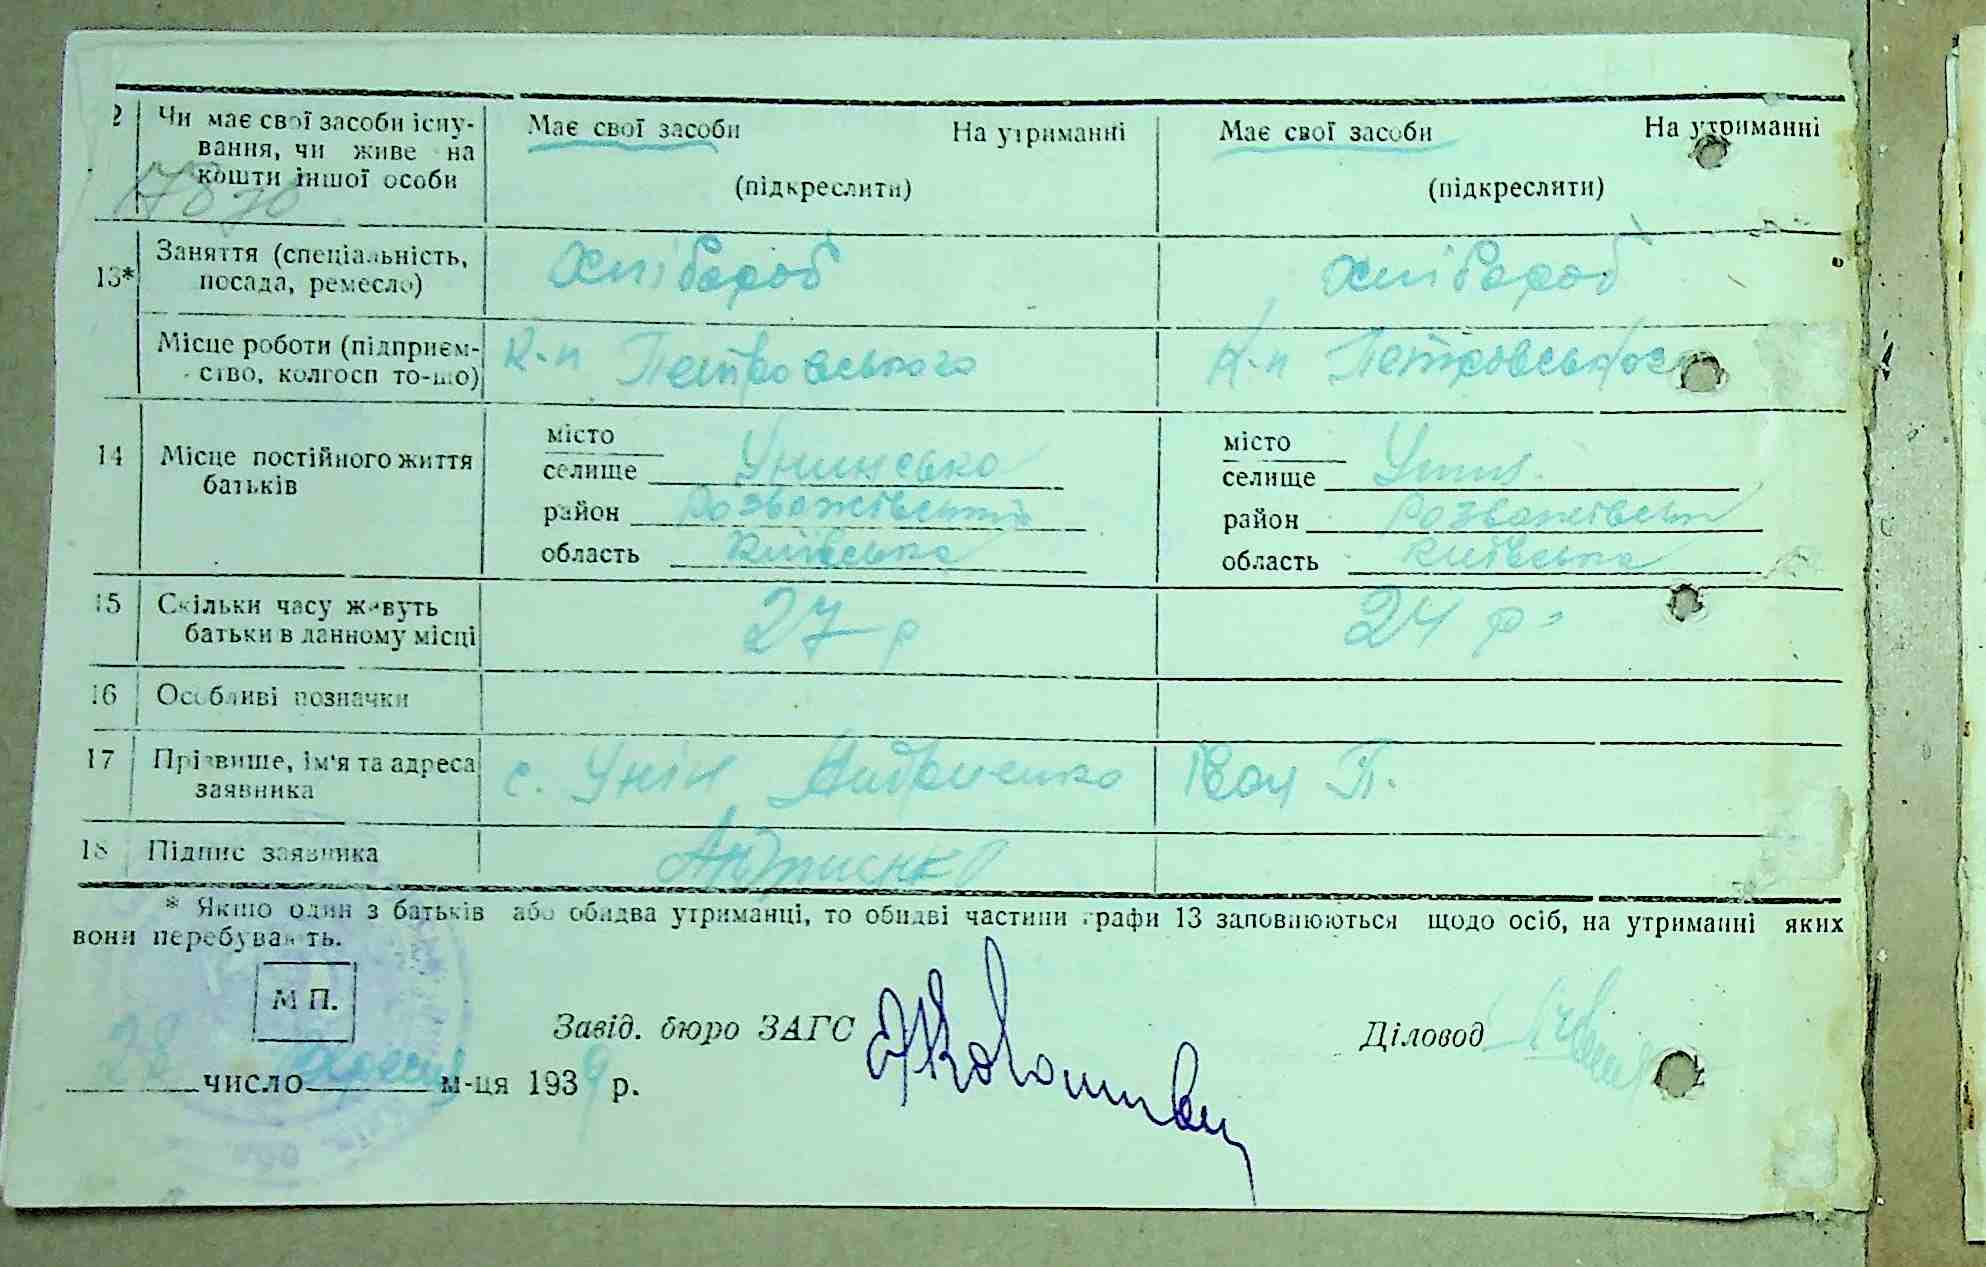 2 Чи має свої засоби існу- Має свої засоби На утриманні Має свої засоби На утриманні
вання, чи живе на
кошти іншої особи (підкреслити) (підкреслити)
13* Заняття (спеціальність, хлібороб хлібороб
посада, ремесло)
Місце роботи (підприєм- к-п Петровського к-п Петровського
ство, колгосп то-що)
14 Місце постійного життя
батьків
місто місто
селище Унинсько селище
район Розважівський район Розважівськ
область Київська область Київська
15 Скільки часу живуть 27 р 24 р.
батьки в данному місці
16 Особливі позначки
17 Прізвище, ім'я та адреса с. Унін Андриенко Іван П.
заявника
18 Підпис заявника
* Якшо один з батьків або обидва утриманці, то обидві частини графи 13 заповнюються щодо осіб, на утриманні яких
вони перебувають.
М П.
Завід. бюро ЗАГС Діловод
28 число м-ця 1939 р.